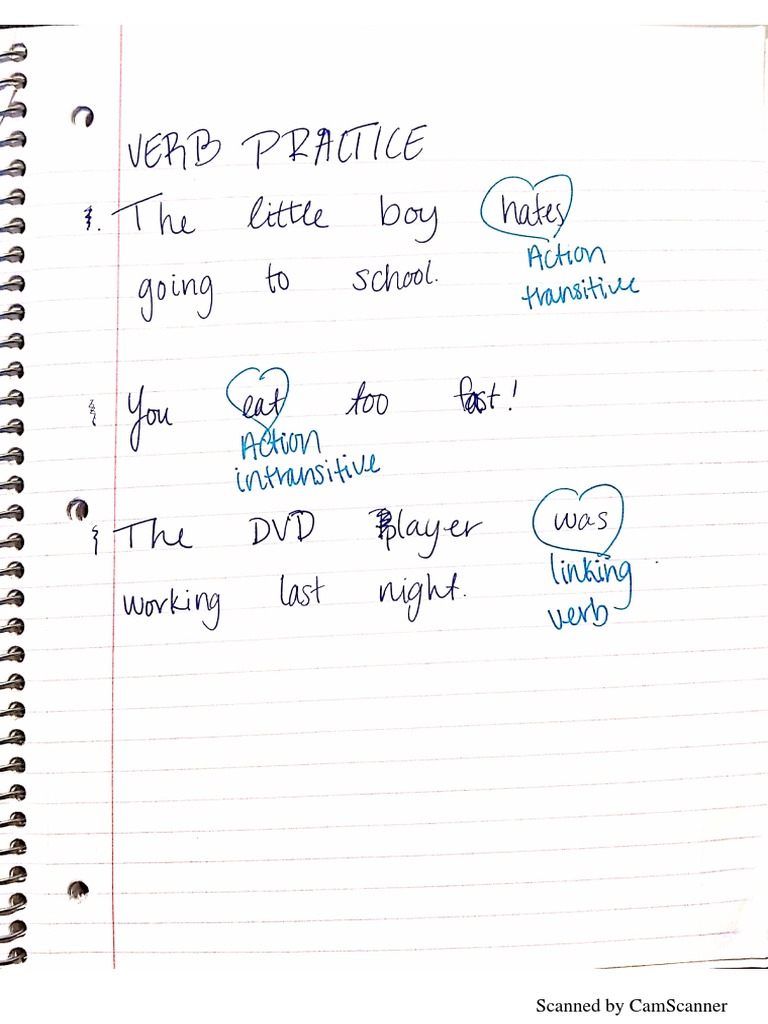 VERB PRACTICE
The little boy hates
Action
going to school.
transitive
You eat too fast!
Action
intransitive
The DVD Player was
linking
working last night.
verb
Scanned by CamScanner